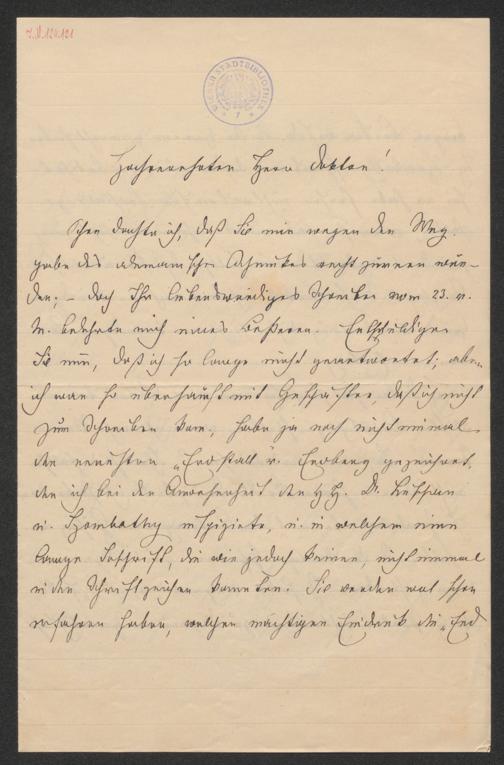 I.N. 120.121
WIENER STADTBIBLIOTHEK
Hochverehrter Herr Doktor!
Schon dachte ich, daß Sie mir wegen der Weg-
gabe des Schmuckes recht zürnen wür-
den; – doch Ihr liebenswürdiges Schreiben vom 23. v.
M. belehrte mich eines Besseren. Entschuldigen
Sie nun, daß ich so lange nicht geantwortet; aber
ich war so überhäuft mit Geschäften, daß ich nicht
zum Schreiben kam, habe ja noch nicht einmal
den neuesten „Erdstall v. Erdberg gezeichnet,
den ich bei der Anwesenheit der HH. Dr. Luschan
u. Szombathy inspizierte, u. in welchem eine
lange Inschrift, die wir jedoch keiner, nicht einmal
in den Schriftzeichen kannten. Sie werden wol schon
erfahren haben, welchen mächtigen Eindruck die „Erd